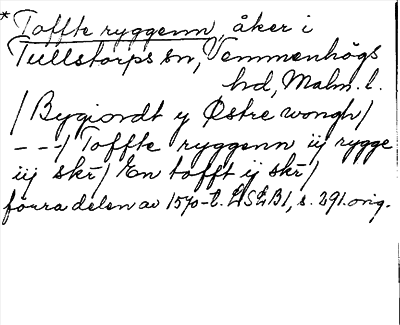 * Toffte ryggenn, åker i
Tullstorps sn, Vemmenhögs
hd, Malm. l.
/ Bygiordt y Østre wongh /
- - -/ Toffte ryggenn iij rygge
iij skr̄ / En tofft ij skr̄ /
förra delen av 1570-t. LSLB1, s. 291. orig.